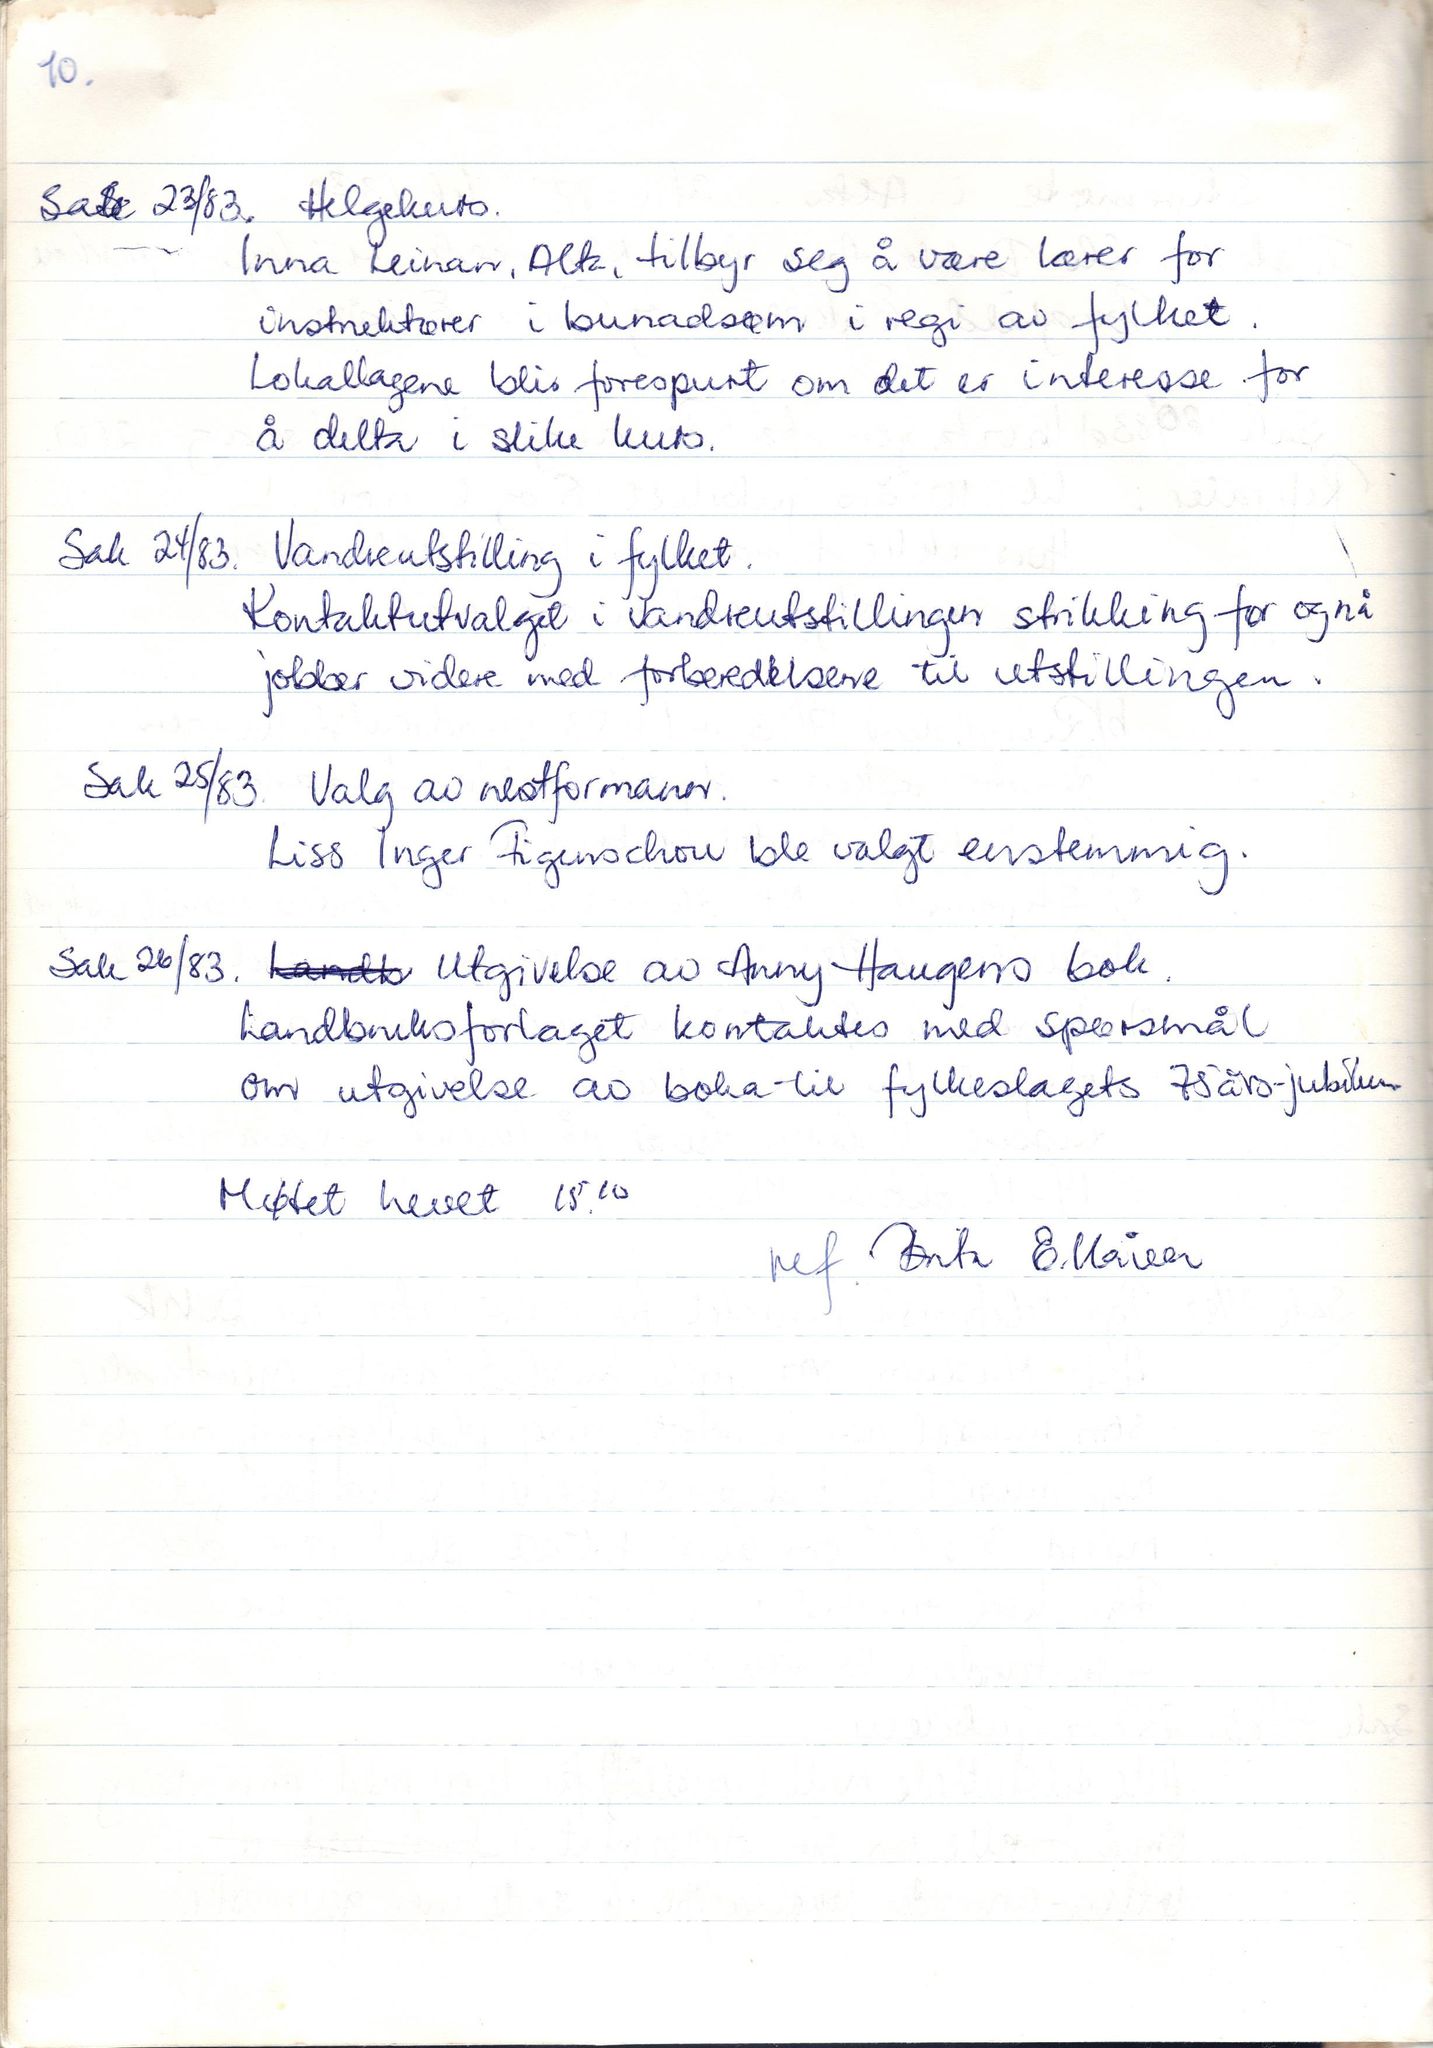 10.
Sak 23/83. Helgekurs.
Inna Leinan, Alta, tilbyr seg å være lærer for
instruktører i bunadsøm i regi av fylket.
Lokallagene blir forespurt om det er interesse for
å delta i slike kurs.
Sak 24/83. Vandreutstilling i fylket.
Kontaktutvalget i vandreutstillingen strikking før og nå
jobber videre med forberedelsene til utstillingen.
Sak 25/83. Valg av nestformann.
Liss Inger Figenschou ble valgt enstemmig.
Sak 26/83. Landb Utgivelse av Anny Haugens bok.
Landbruksforlaget kontaktes med spørsmål
om utgivelse av boka til fylkeslagets 75års-jubileum
Møtet hevet 15.10
ref.